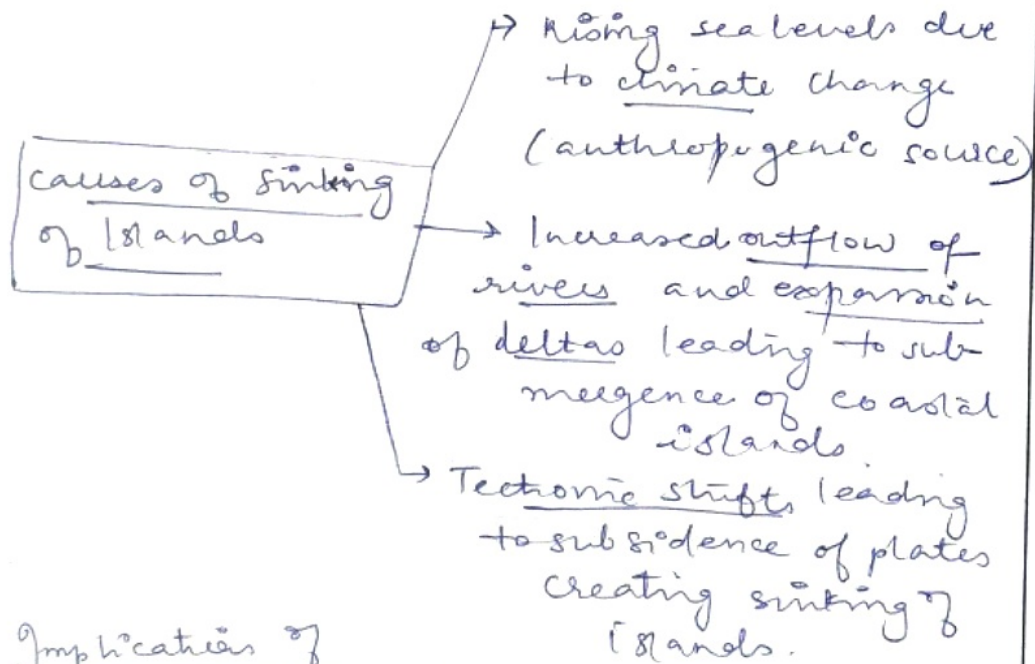 causes of sinking
of Islands
→ Rising sea levels due
to climate change
(anthropogenic source)
→ Increased outflow of
rivers and expansion
of deltas leading to sub-
mergence of coastal
islands
→ Tectonic shifts leading
to subsidence of plates
creating sinking of
islands.
Implications of